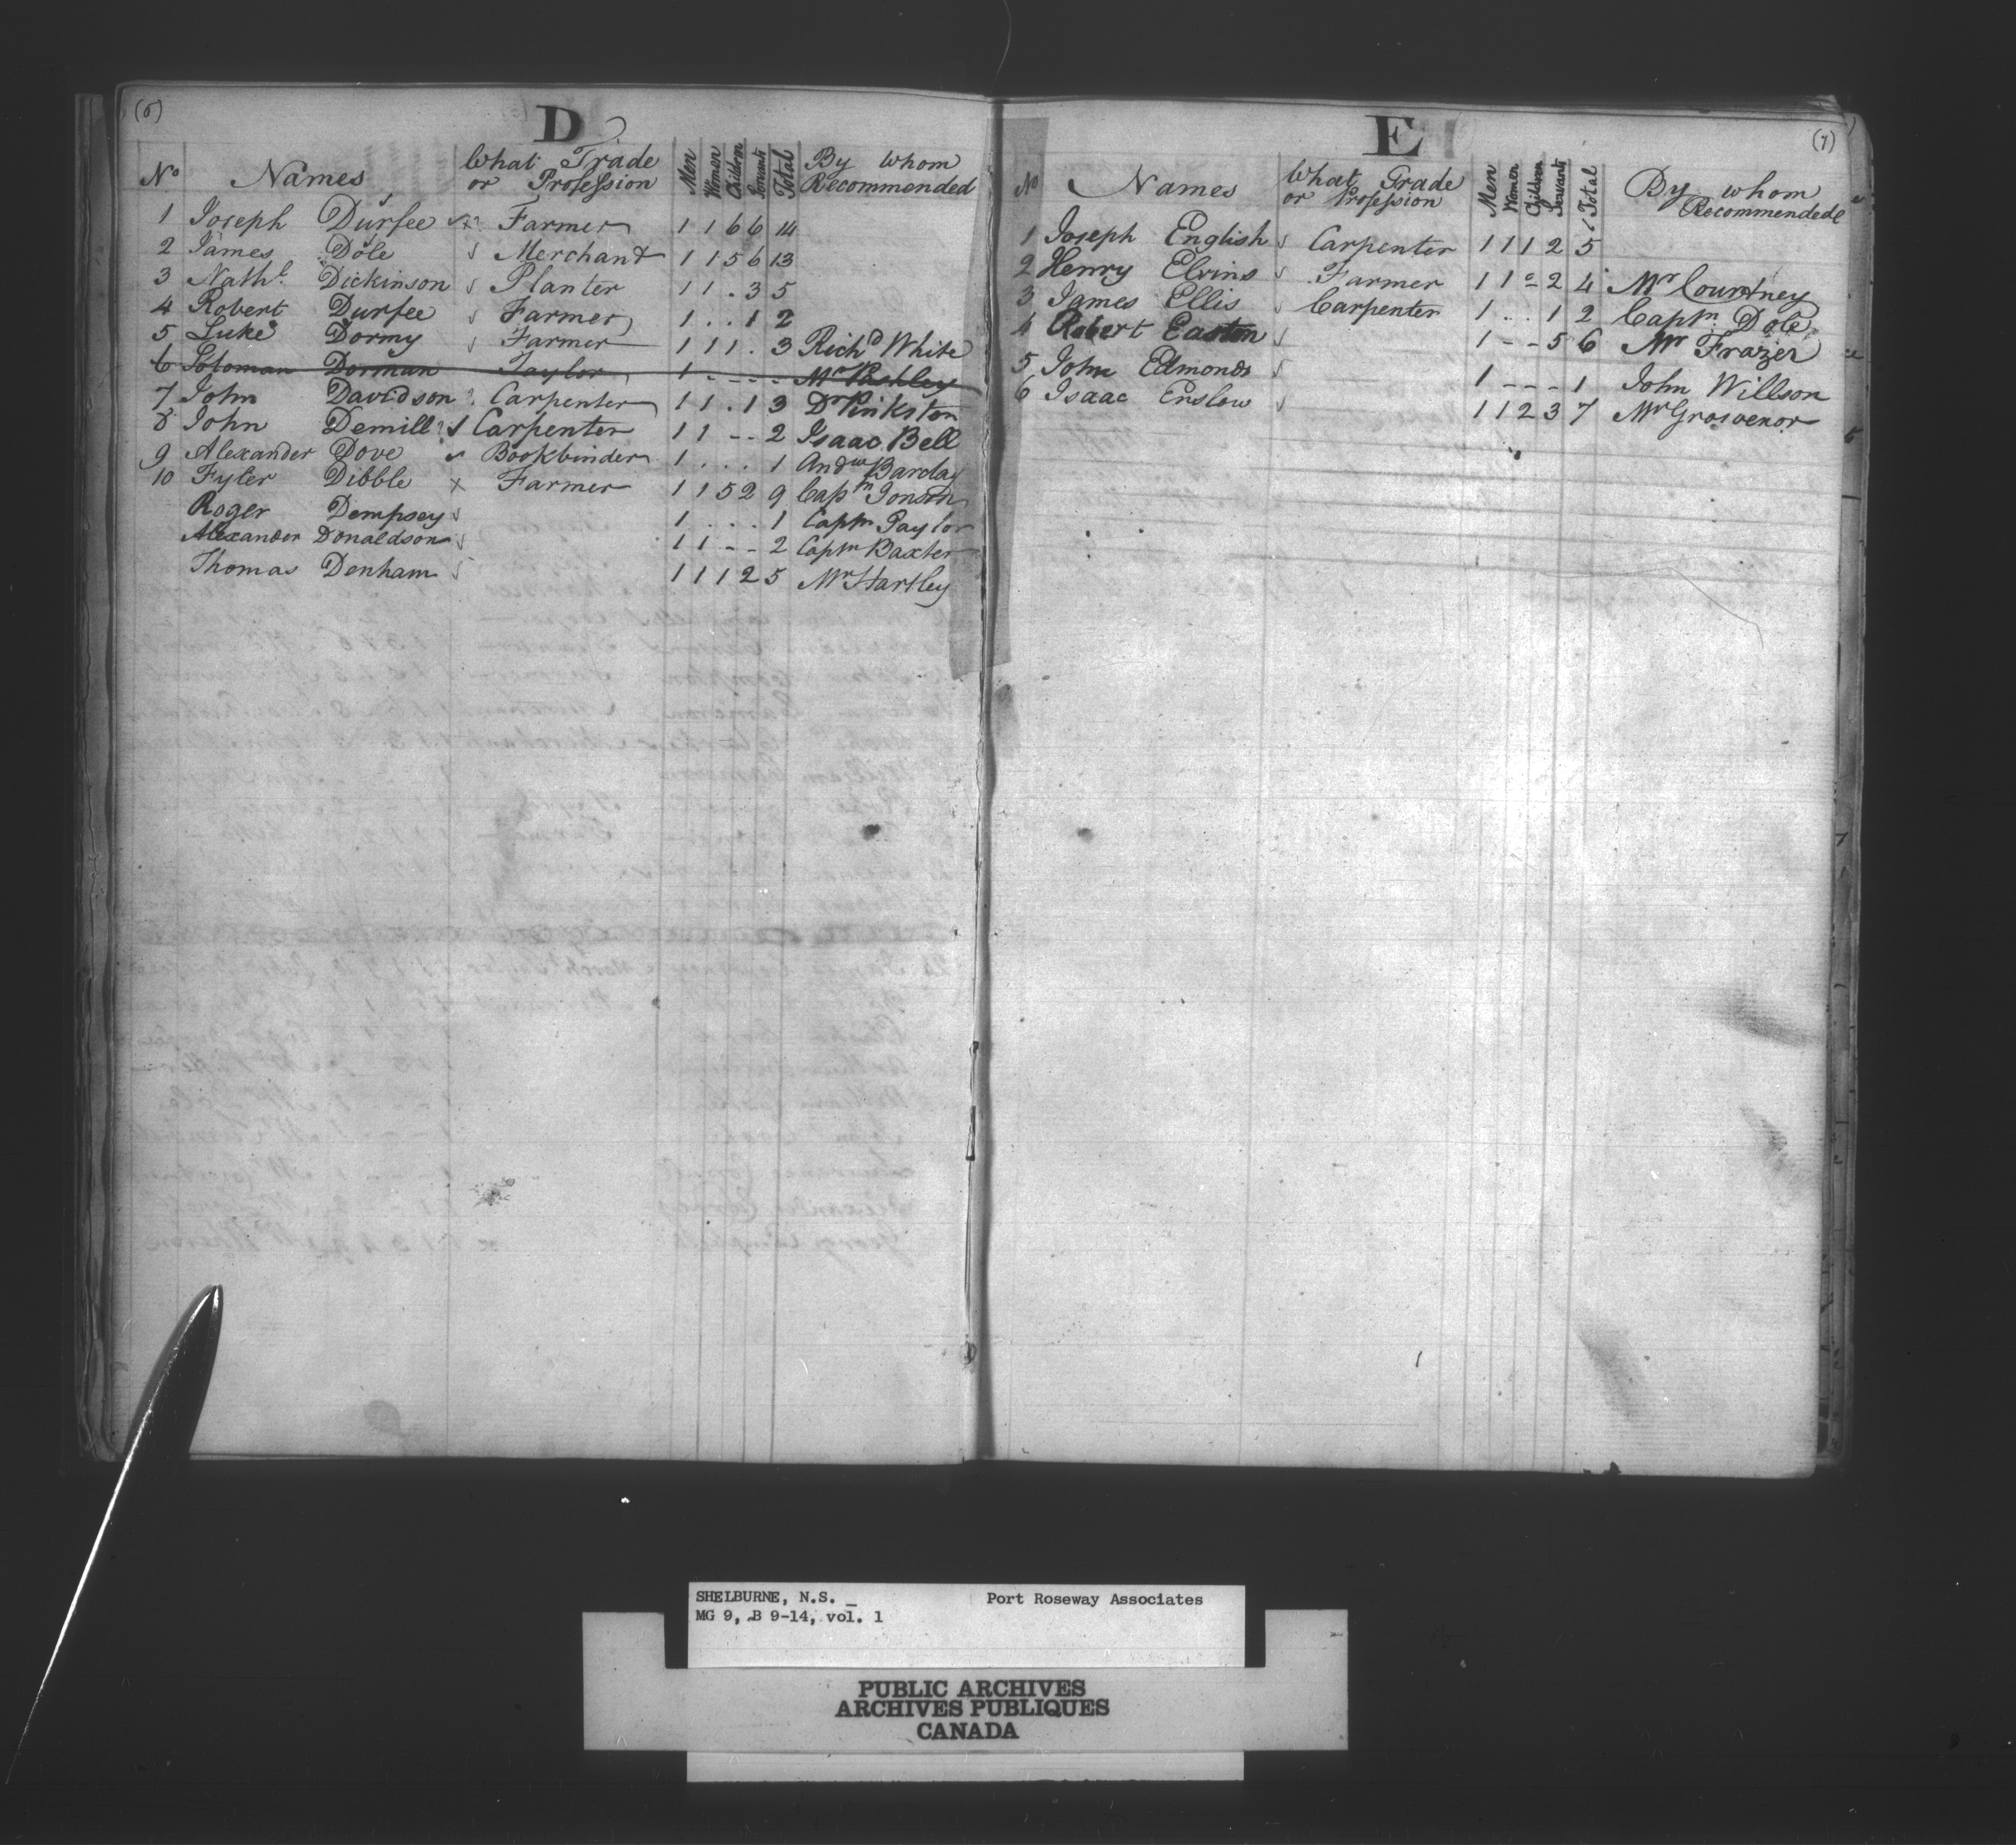 (6)
D
No Names What Trade or Profession Men Women Children Servants Total By whom Recommended
1 Joseph Durfee Farmer 1 1 6 6 14
2 James Dole Merchant 1 1 5 6 13
3 Nathl. Dickinson Planter 1 1 . 3 5
4 Robert Durfee Farmer 1 . . 1 2
5 Luke Dormy Farmer 1 1 1 . 3 Richd White
6 Soloman Dorman Taylor 1 - - - - Mr Pashley
7 John Davidson Carpenter 1 1 . 1 3 Dr Pinkston
8 John Demill Carpenter 1 1 - - 2 Isaac Bell
9 Alexander Dove Bookbinder 1 . . . 1 Andw Barclay
10 Fyler Dibble x Farmer 1 1 5 2 9 Captn
Roger Dempsey 1 . . . 1 Captn Taylor
Alexander Donaldson 1 1 - - 2 Captn Baxter
Thomas Denham 1 1 1 2 5 Mr Hartley
(7)
E
No Names What Trade or Profession Men Women Children Servants Total By whom Recommended
1 Joseph English Carpenter 1 1 1 2 5
2 Henry Elvins Farmer 1 1 - 2 4 Mr Courtney
3 James Ellis Carpenter 1 . . 1 2 Captn. Dole
4 Robert Easton 1 - - 5 6 Mr Frazer
5 John Edmonds 1 - - - 1 John Willson
6 Isaac Enslow 1 1 2 3 7 Mr Grosvenor
SHELBURNE, N.S. _ Port Roseway Associates
MG 9, B 9-14, vol. 1
PUBLIC ARCHIVES
ARCHIVES PUBLIQUES
CANADA